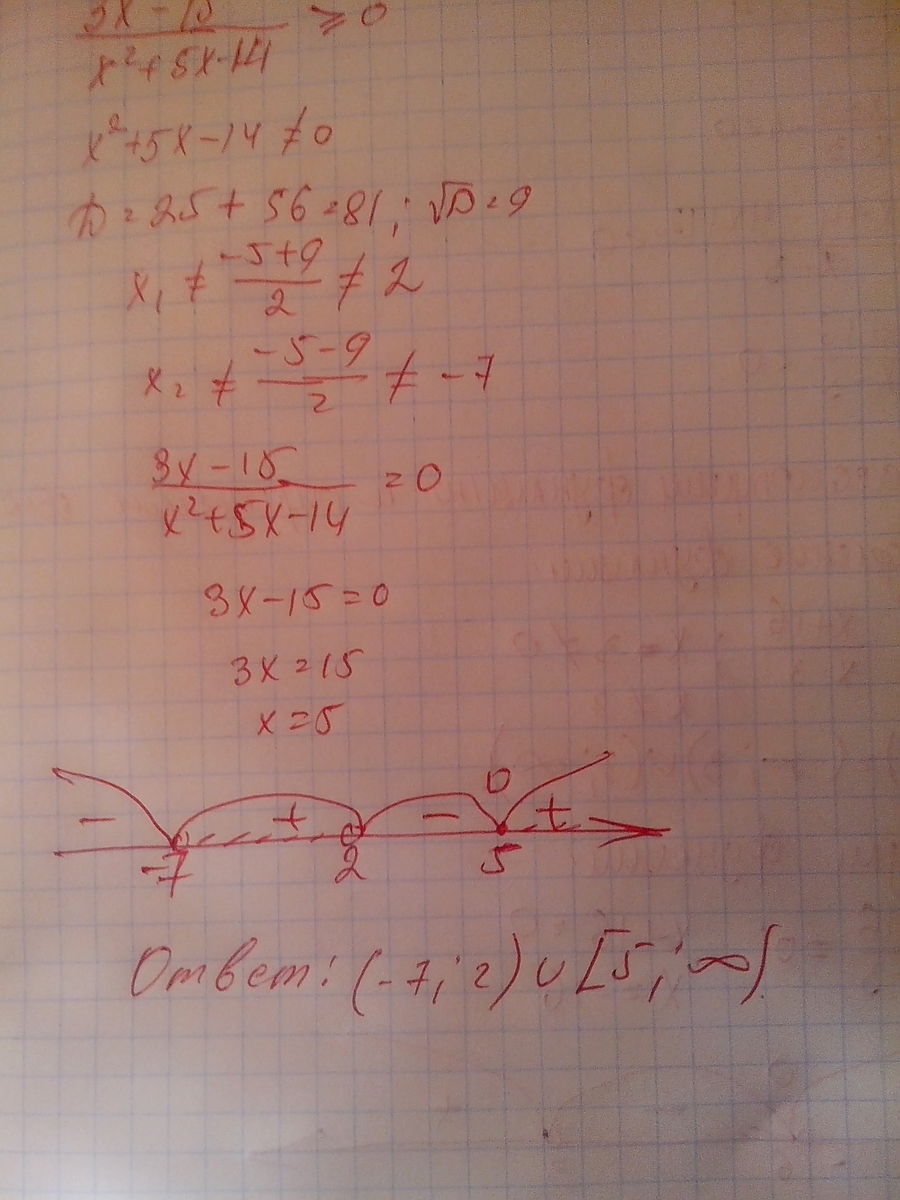 3x - 15 / x² + 5x - 14 ≥ 0
x² + 5x - 14 ≠ 0
D = 25 + 56 = 81; √D = 9
x₁ ≠ -5+9 / 2 ≠ 2
x₂ ≠ -5-9 / 2 ≠ -7
3x - 15 / x² + 5x - 14 = 0
3x - 15 = 0
3x = 15
x = 5
- + - 0 +
-7 2 5
Ответ: (-7; 2) ∪ [5; ∞)